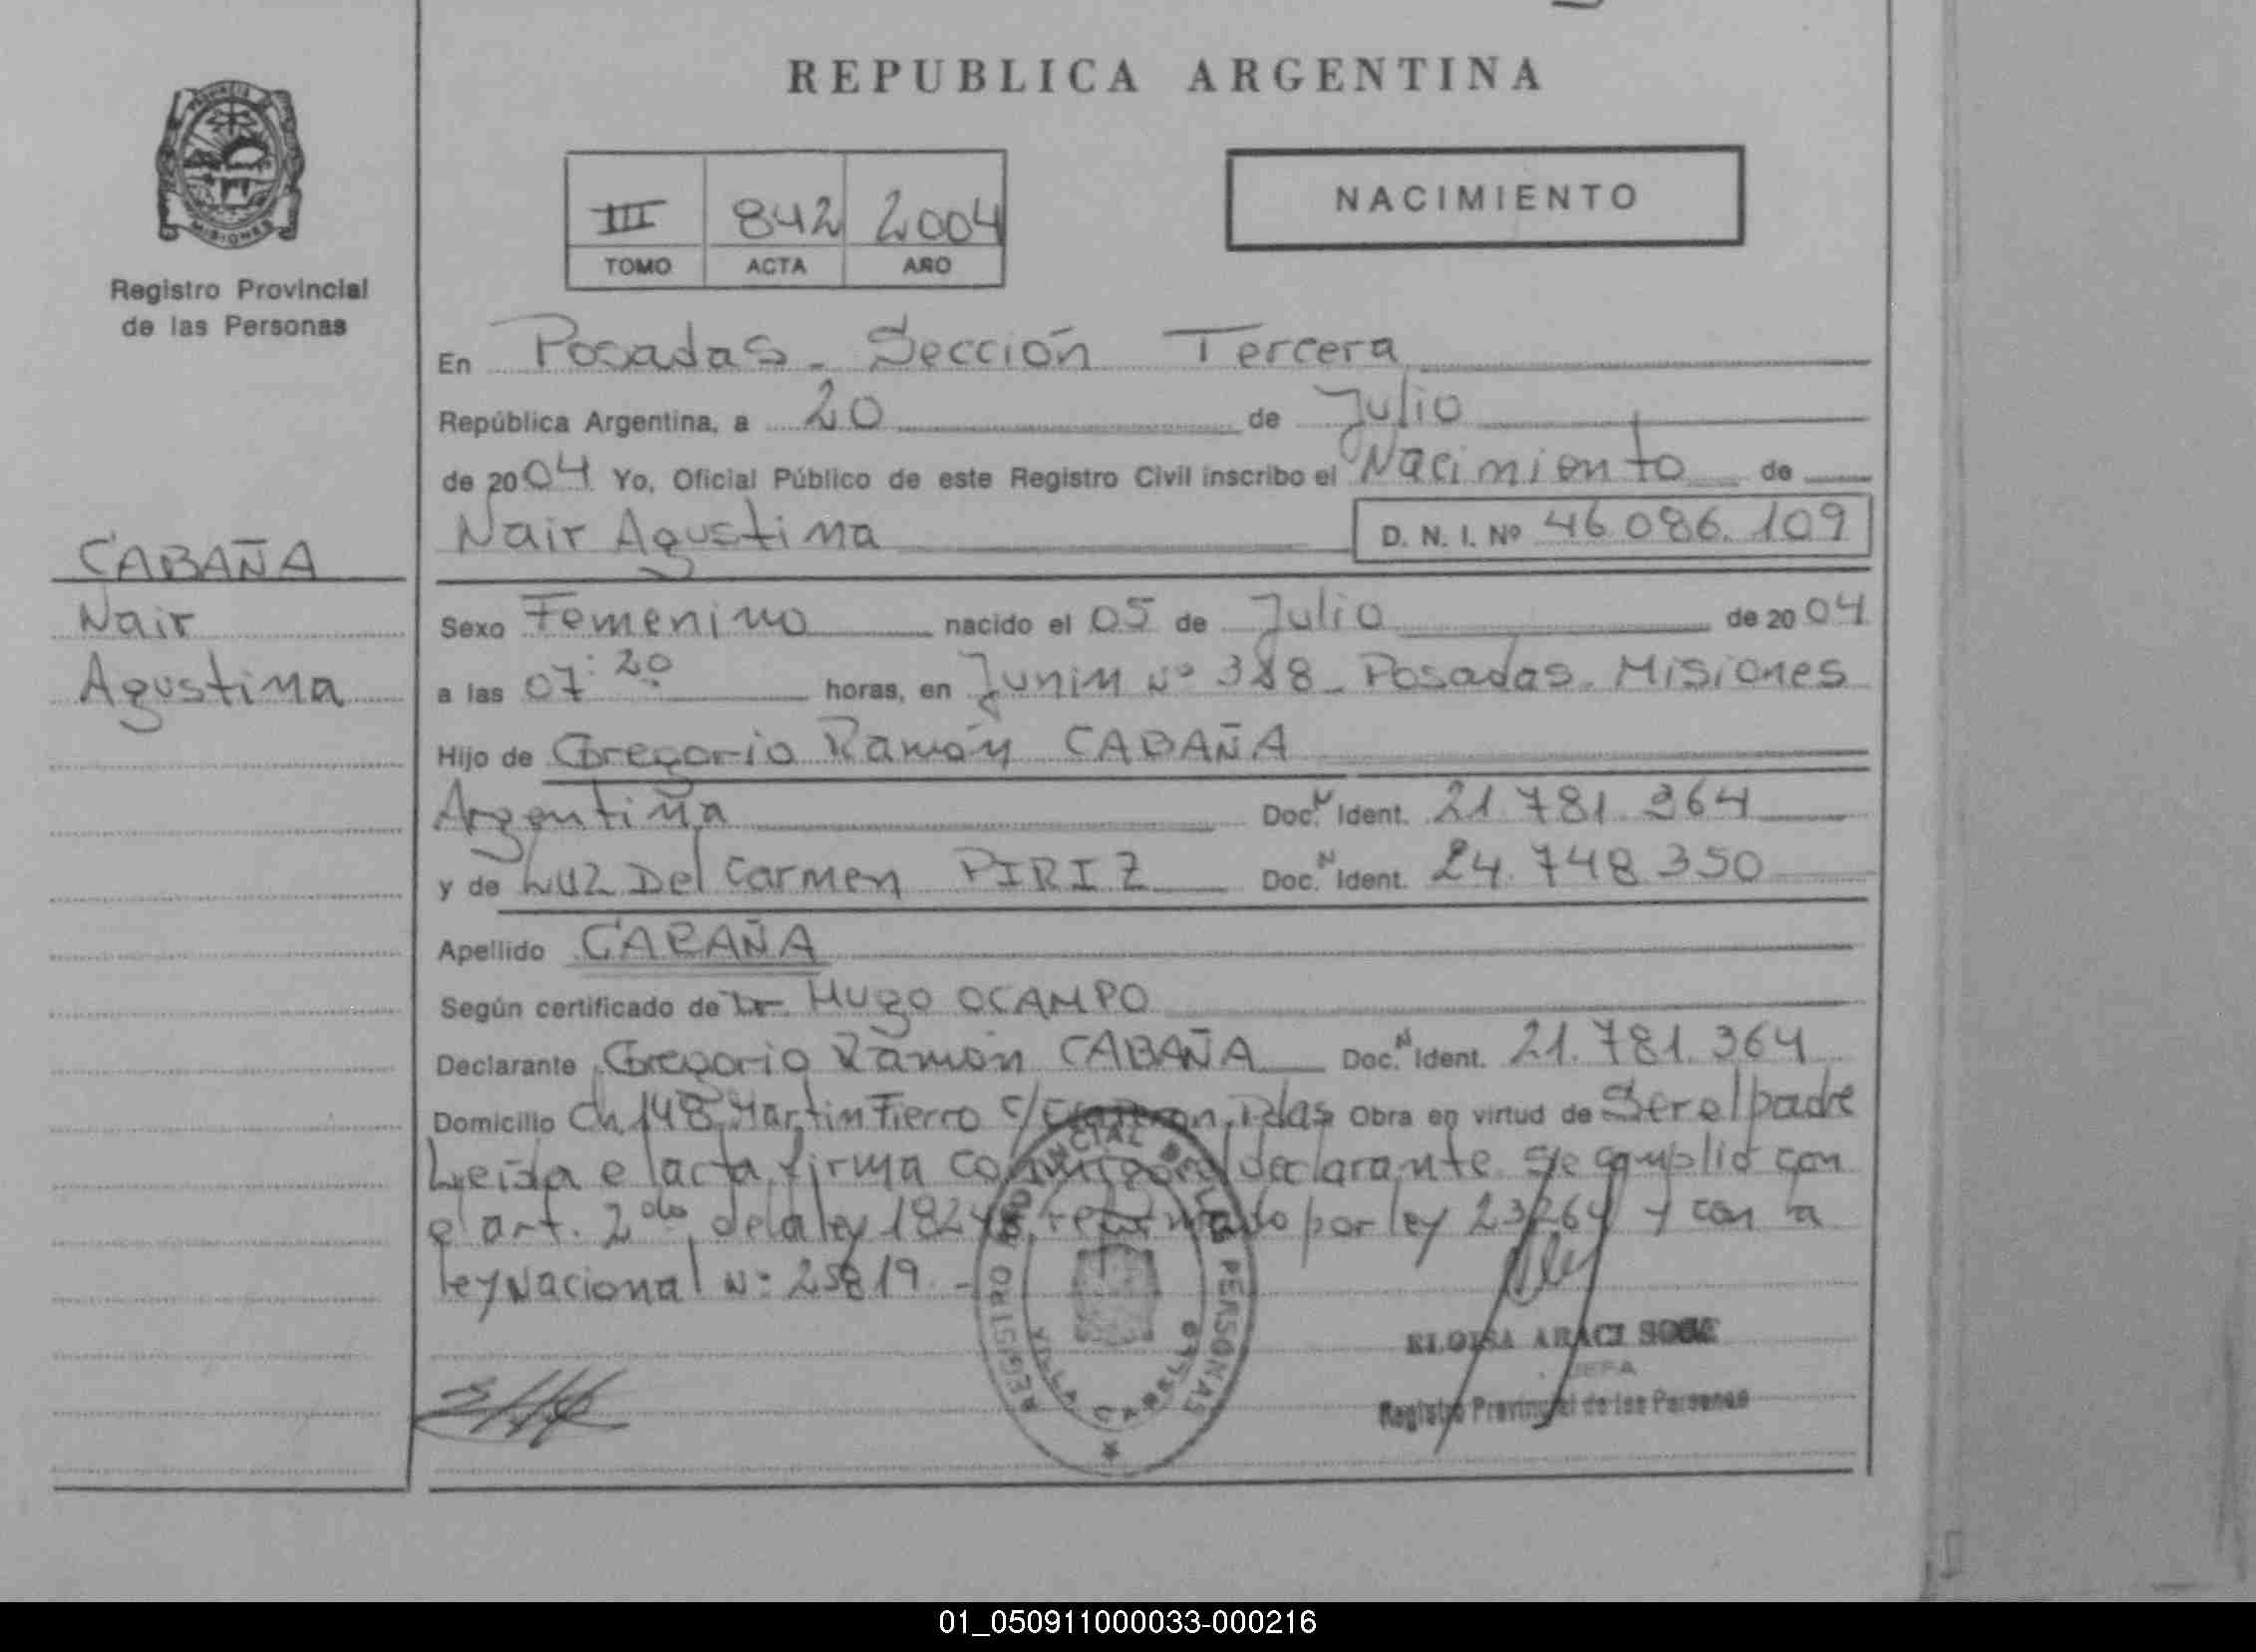 REPUBLICA ARGENTINA
PROVINCIA DE
MISIONES
Registro Provincial
de las Personas
III 842 2004
TOMO ACTA AÑO
NACIMIENTO
En Posadas - Sección Tercera
República Argentina, a 20 de Julio
de 2004 Yo, Oficial Público de este Registro Civil inscribo el Nacimiento de
Nair Agustina D. N. I. Nº 46.086.109
CABAÑA
Nair
Agustina
Sexo Femenino nacido el 05 de Julio de 2004
a las 07:20 horas, en Junin Nº 388 - Posadas - Misiones
Hijo de Gregorio Ramón CABAÑA
Argentina Doc. N Ident. 21.781.364
y de Luz Del Carmen PIRIZ Doc. N Ident. 24.748.350
Apellido CABAÑA
Según certificado de Dr. Hugo OCAMPO
Declarante Gregorio Ramón CABAÑA Doc. N Ident. 21.781.364
Domicilio Ch. 148 Martin Fierro c/ Pdas Obra en virtud de Ser el padre
Leida el acta, firma conmigo el declarante. Se cumplió con
el art. 2do de la ley 18248 reformado por ley 23264 y con la
ley Nacional Nº 25819 -
REGISTRO PROVINCIAL DE LAS PERSONAS
VILLA CABELLO
ELOISA ARACI SOSA
JEFA
Registro Provincial de las Personas
01_050911000033-000216